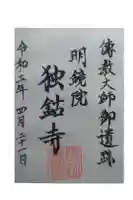 傳教大師御遺跡
明鏡院
独鈷寺
令和三年四月二十一日